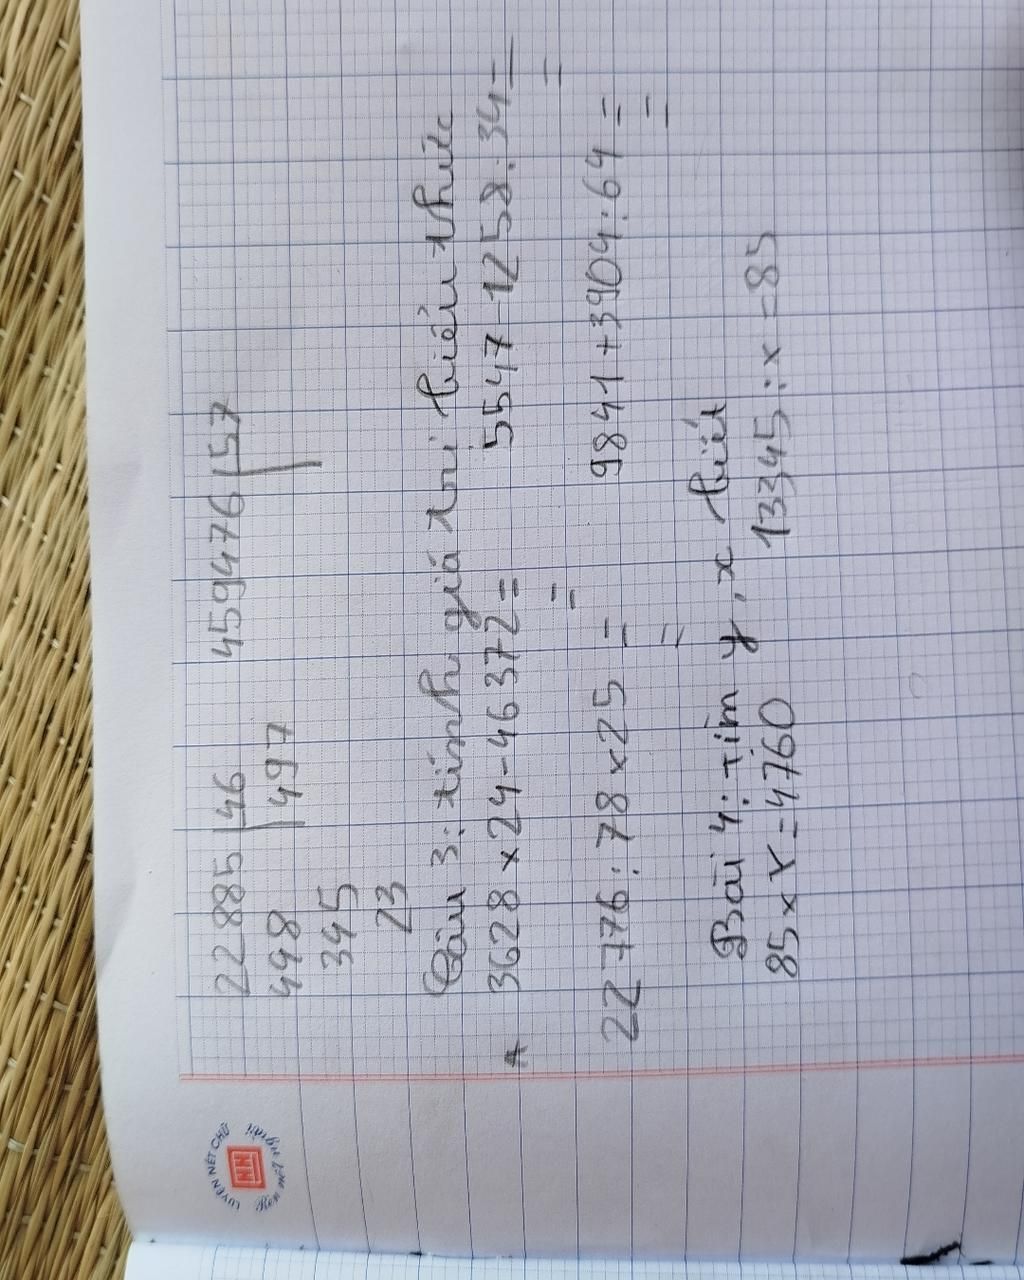 22885 46 459476 57
498 497
345
23
Câu 3: tính giá trị biểu thức
3628 x 24 - 46372 = 5547 - 1258 : 34 =
= =
22776 : 78 x 25 = 9841 + 3904 : 64 =
= =
Bài 4: Tìm y, x biết
85 x Y = 4760 13345 : x = 85
LUYỆN NÉT CHỮ
NH
Rèn nết người